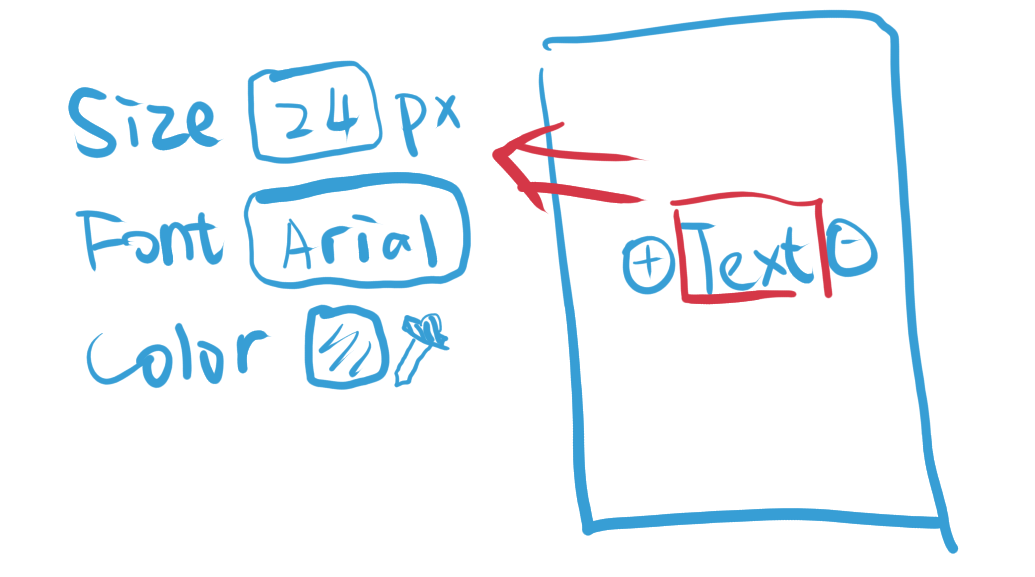 Size 24 px
Font Arial
Color
+ Text -